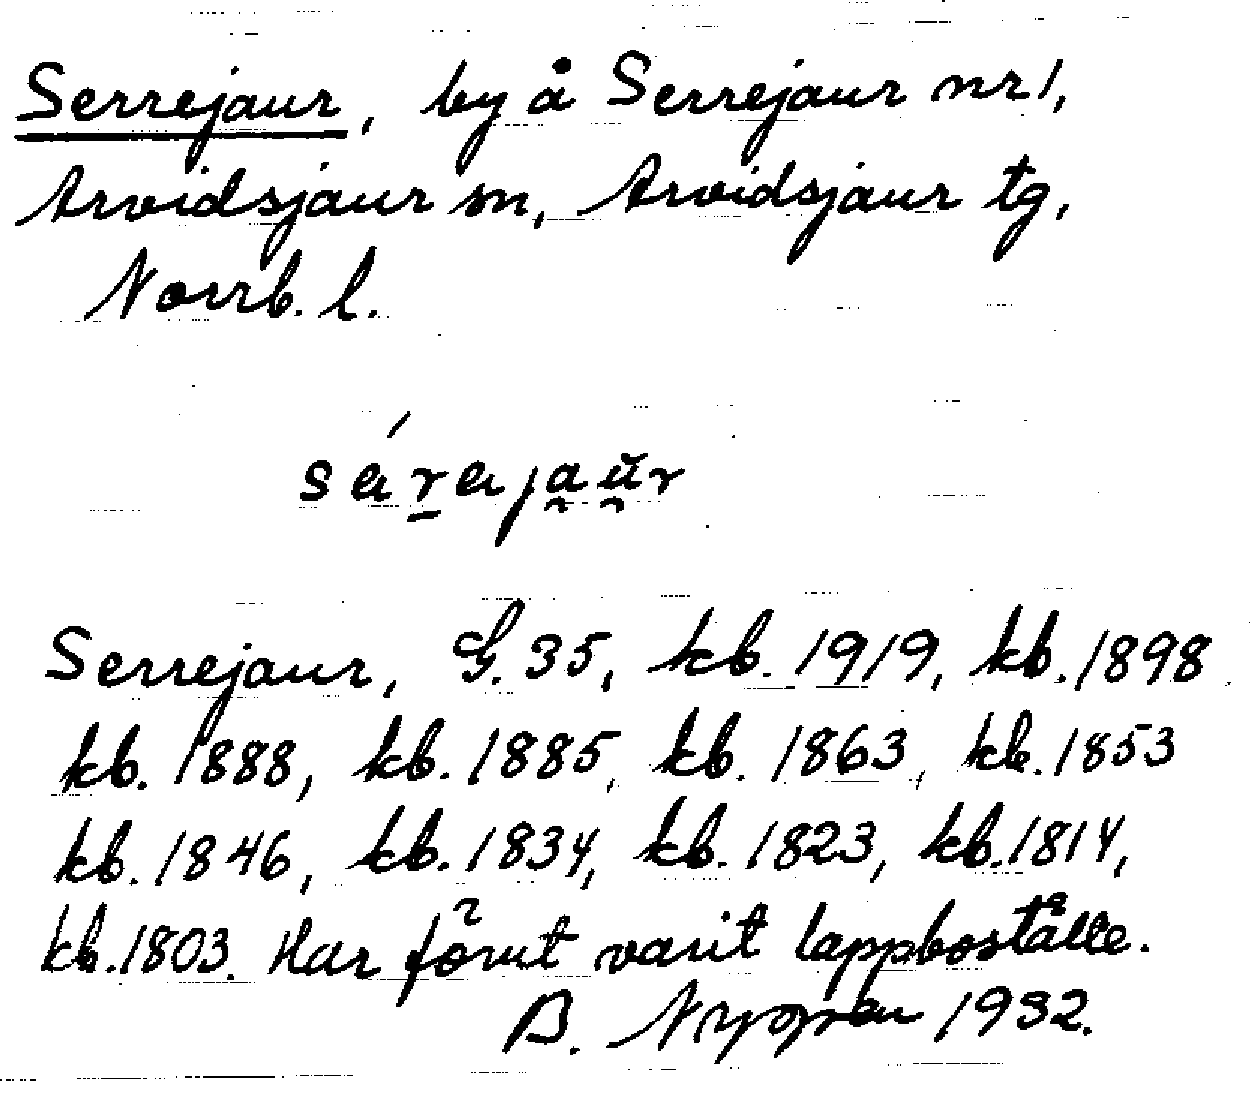 Serrejaur, by å Serrejaur nr 1,
Arvidsjaur sn, Arvidsjaur tg,
Norrb. l.
Serrejaur, G. 35, kb. 1919, kb. 1898
kb. 1888, kb. 1885, kb. 1863, kb. 1853
kb. 1846, kb. 1834, kb. 1823, kb. 1814,
kb. 1803. Har förut varit lappboställe.
B. 1932.